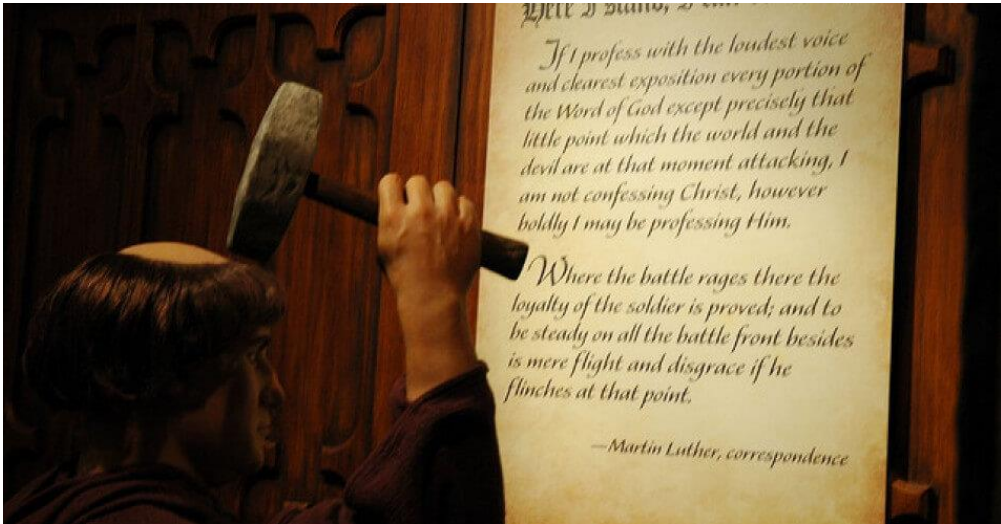 Here I stand, I can
If I profess with the loudest voice
and clearest exposition every portion of
the Word of God except precisely that
little point which the world and the
devil are at that moment attacking, I
am not confessing Christ, however
boldly I may be professing Him.
Where the battle rages there the
loyalty of the soldier is proved; and to
be steady on all the battle front besides
is mere flight and disgrace if he
flinches at that point.
—Martin Luther, correspondence